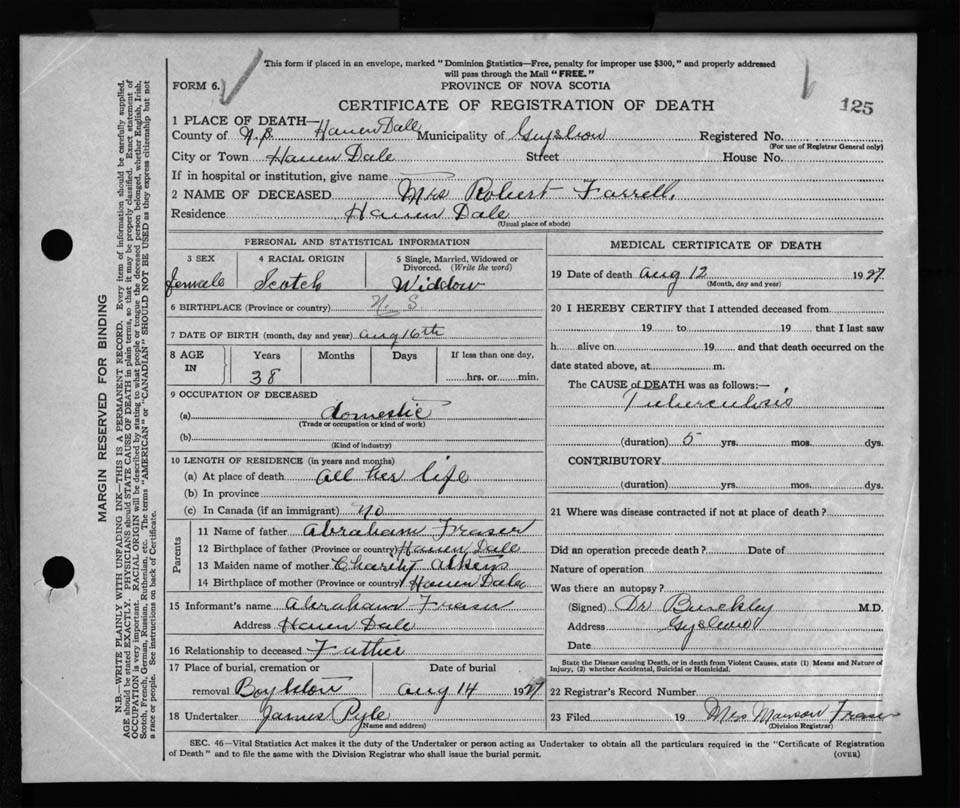 This form if placed in an envelope, marked "Dominion Statistics—Free, penalty for improper use $300," and properly addressed
will pass through the Mail "FREE."
FORM 6.
PROVINCE OF NOVA SCOTIA
CERTIFICATE OF REGISTRATION OF DEATH
125
1 PLACE OF DEATH—
County of N.S. Hauen Dale Municipality of Registered No.
(For use of Registrar General only)
City or Town Hauen Dale Street House No.
If in hospital or institution, give name
2 NAME OF DECEASED Mrs Robert Farrell,
Residence Hauen Dale
(Usual place of abode)
PERSONAL AND STATISTICAL INFORMATION
3 SEX 4 RACIAL ORIGIN 5 Single, Married, Widowed or Divorced. (Write the word)
female Scotch Widdow
6 BIRTHPLACE (Province or country) N. S.
7 DATE OF BIRTH (month, day and year) Aug 16th
8 AGE IN Years Months Days If less than one day,
38 hrs. or min.
9 OCCUPATION OF DECEASED
(a) domestic
(Trade or occupation or kind of work)
(b)
(Kind of industry)
10 LENGTH OF RESIDENCE (in years and months)
(a) At place of death all her life
(b) In province
(c) In Canada (if an immigrant) no
Parents
11 Name of father Abraham Fraser
12 Birthplace of father (Province or country) Hauen Dale
13 Maiden name of mother Charity
14 Birthplace of mother (Province or country) Hauen Dale
15 Informant's name Abraham Fraser
Address Hauen Dale
16 Relationship to deceased Father
17 Place of burial, cremation or Date of burial
removal Boylston Aug 14 1927
18 Undertaker James Pyle
(Name and address)
MEDICAL CERTIFICATE OF DEATH
19 Date of death Aug 12 1927
(Month, day and year)
20 I HEREBY CERTIFY that I attended deceased from
19 to 19 that I last saw
h alive on 19 and that death occurred on the
date stated above, at m.
The CAUSE of DEATH was as follows:—
Tuberculosis
(duration) 5 yrs. mos. dys.
CONTRIBUTORY
(duration) yrs. mos. dys.
21 Where was disease contracted if not at place of death?
Did an operation precede death? Date of
Nature of operation
Was there an autopsy?
(Signed) Dr M.D.
Address
Date
State the Disease causing Death, or in death from Violent Causes, state (1) Means and Nature of
Injury, (2) whether Accidental, Suicidal or Homicidal.
22 Registrar's Record Number
23 Filed 19 Mrs Fraser
(Division Registrar)
SEC. 46—Vital Statistics Act makes it the duty of the Undertaker or person acting as Undertaker to obtain all the particulars required in the "Certificate of Registration
of Death" and to file the same with the Division Registrar who shall issue the burial permit.
(OVER)
MARGIN RESERVED FOR BINDING
N.B.—WRITE PLAINLY WITH UNFADING INK—THIS IS A PERMANENT RECORD. Every item of information should be carefully supplied.
AGE should be stated EXACTLY. PHYSICIANS should STATE CAUSE OF DEATH in plain terms, so that it may be properly classified. Exact statement of
OCCUPATION is very important. RACIAL ORIGIN will be described by stating to what people or tongue the deceased person belonged, whether English, Irish,
Scotch, French, German, Russian, Ruthenian, etc. The terms "AMERICAN" or "CANADIAN" SHOULD NOT BE USED as they express citizenship but not
a race or people. See instructions on back of Certificate.